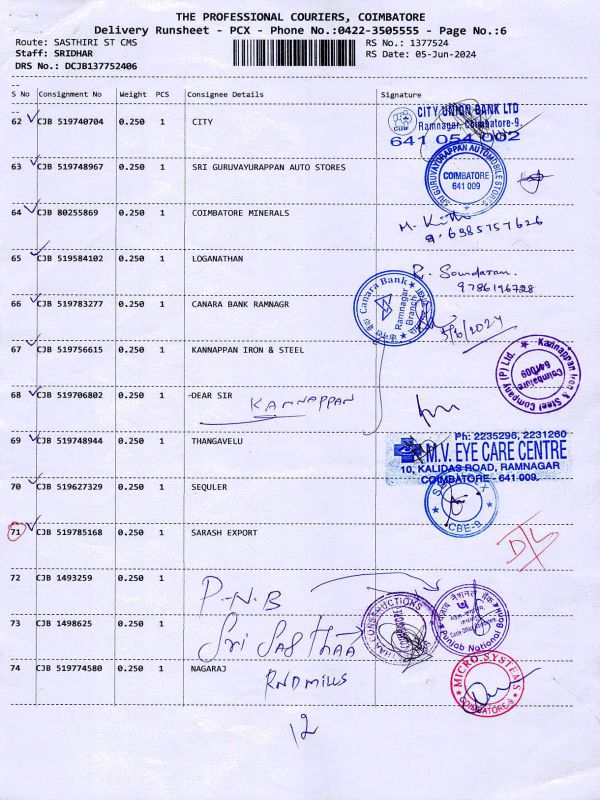 THE PROFESSIONAL COURIERS, COIMBATORE
Delivery Runsheet - PCX - Phone No.:0422-3505555 - Page No.:6
Route: SASTHIRI ST CMS
RS No.: 1377524
Staff: SRIDHAR
RS Date: 05-Jun-2024
DRS No.: DCJB137752406
S No Consignment No Weight PCS Consignee Details Signature
62 CJB 519740704 0.250 1 CITY
CITY UNION BANK LTD
Ramnagar, Coimbatore-9.
641 054 002
63 CJB 519748967 0.250 1 SRI GURUVAYURAPPAN AUTO STORES
GURUVAYURAPPAN AUTOMOBILE STORES
COIMBATORE
641 009
64 CJB 80255869 0.250 1 COIMBATORE MINERALS
65 CJB 519584102 0.250 1 LOGANATHAN
R. Soundaram.
9786196728
66 CJB 519783277 0.250 1 CANARA BANK RAMNAGR
Canara Bank
Ramnagar
Branch
5/6/2024
67 CJB 519756615 0.250 1 KANNAPPAN IRON & STEEL
Kannappan Iron & Steel Company (P) Ltd.
Coimbatore
641009
68 CJB 519706802 0.250 1 -DEAR SIR
KANNAPPAN
69 CJB 519748944 1 0.250 THANGAVELU
Ph: 2235296, 2231260
M.V. EYE CARE CENTRE
10, KALIDAS ROAD, RAMNAGAR
COIMBATORE - 641 009.
70 CJB 519627329 0.250 1 SEQULER
CBE-9
71 CJB 519785168 0.250 1 SARASH EXPORT
D/L
72 CJB 1493259 0.250 1
P.N.B
पंजाब नैशनल बैंक
Punjab National Bank
73 CJB 1498625 0.250 1
Sri SASTHAA
CONSTRUCTIONS
74 CJB 519774580 0.250 1 NAGARAJ
RND MILLS
MICRO SYSTEMS
COIMBATORE-9
12